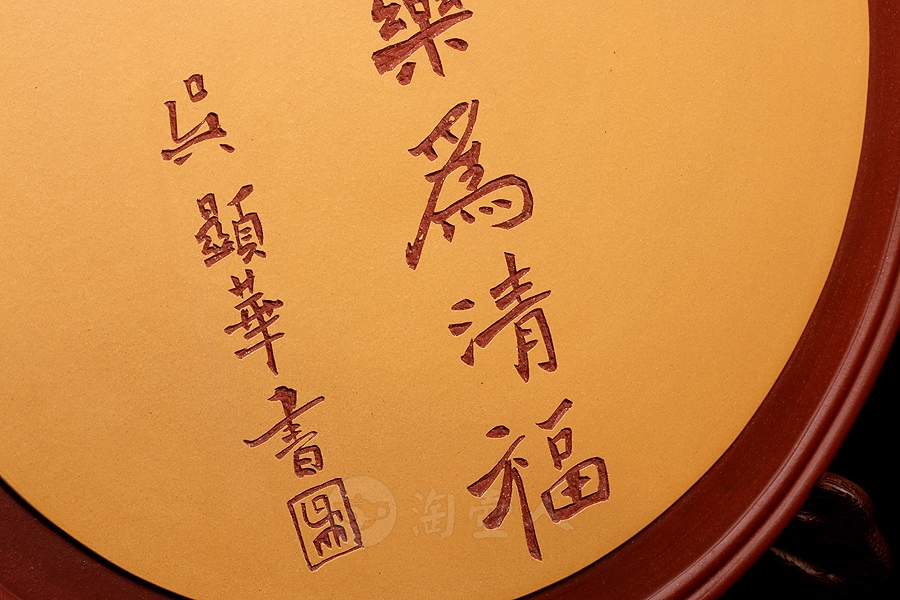 樂為清福
吳顯華書
淘壺人